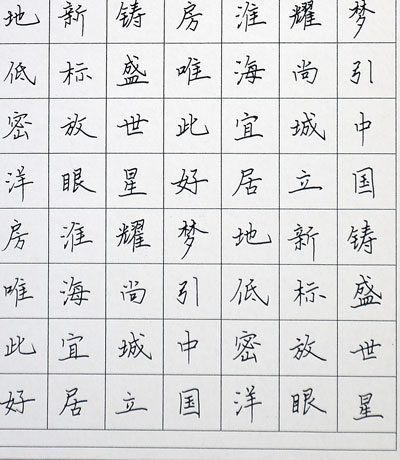 梦引中国铸盛世星
耀尚城立新标放眼
淮海宜居地低密洋
房唯此好梦引中国
铸盛世星耀尚城立
新标放眼淮海宜居
地低密洋房唯此好